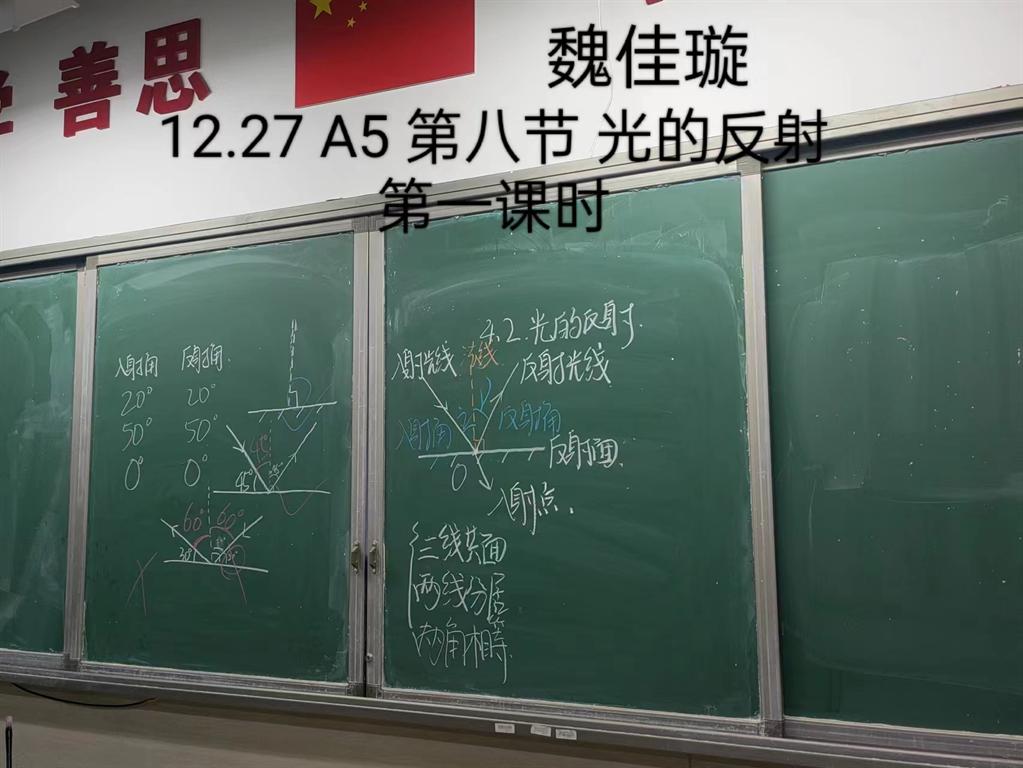 善思
魏佳璇
12.27 A5 第八节 光的反射
第一课时
入射角 反射角
20° 20°
50° 50°
0° 0°
45°
45°
60° 60°
30°
4.2.光的反射
入射光线 法线 反射光线
入射角 反射角
反射面
O
入射点
三线共面
两线分居
两角相等